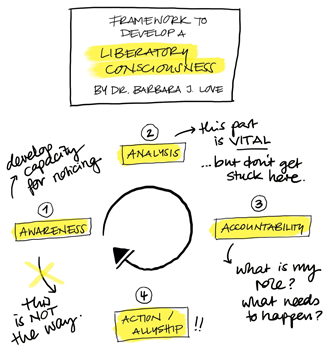 FRAMEWORK TO
DEVELOP A
LIBERATORY
CONSCIOUSNESS
BY DR. BARBARA J. LOVE
develop
capacity
for noticing
1
AWARENESS
this
is NOT
the way.
2
ANALYSIS
this part
is VITAL
...but don't get
stuck here.
3
ACCOUNTABILITY
what is my
role?
what needs
to happen?
4
ACTION /
ALLYSHIP !!